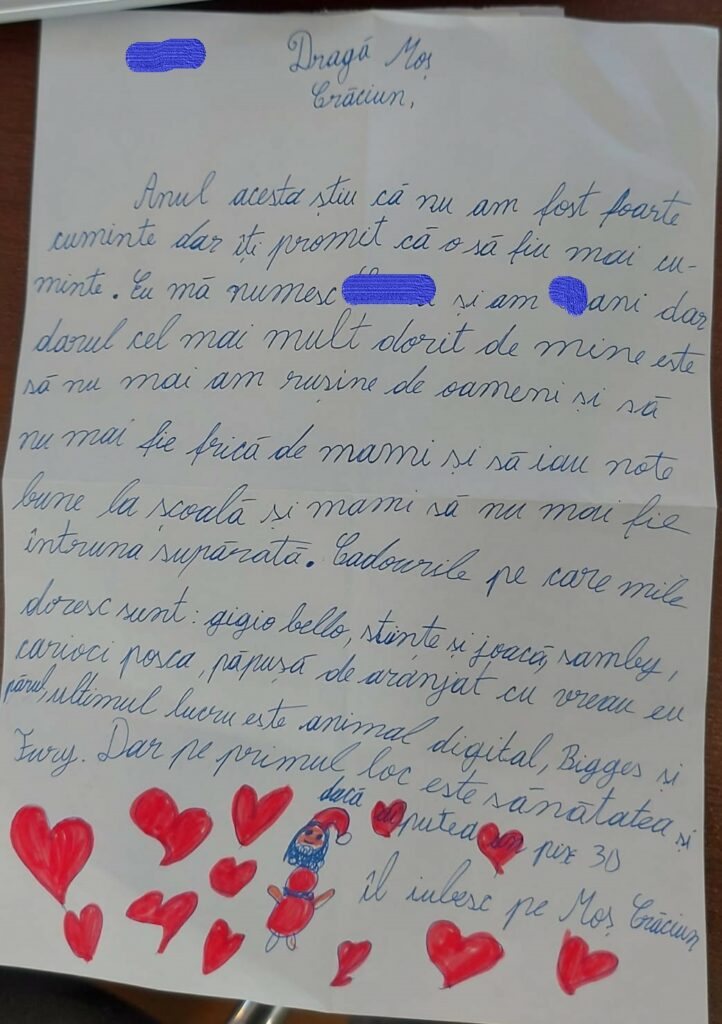 Dragă Moș
Crăciun,
Anul acesta știu că nu am fost foarte
cuminte dar îți promit că o să fiu mai cu-
minte. Eu mă numesc și am ani dar
darul cel mai mult dorit de mine este
să nu mai am rușine de oameni și să
nu mai fie frică de mami și să iau note
bune la școală și mami să nu mai fie
întruna supărată. Cadourile pe care mile
doresc sunt: gigio bello, stiințe și joacă, samby,
carioci posca, păpușă de aranjat cu vreau eu
părul, ultimul lucru este animal digital, Bigges și
Fury. Dar pe primul loc este sănătatea și
dacă putea un pix 3D
îl iubesc pe Moș Crăciun